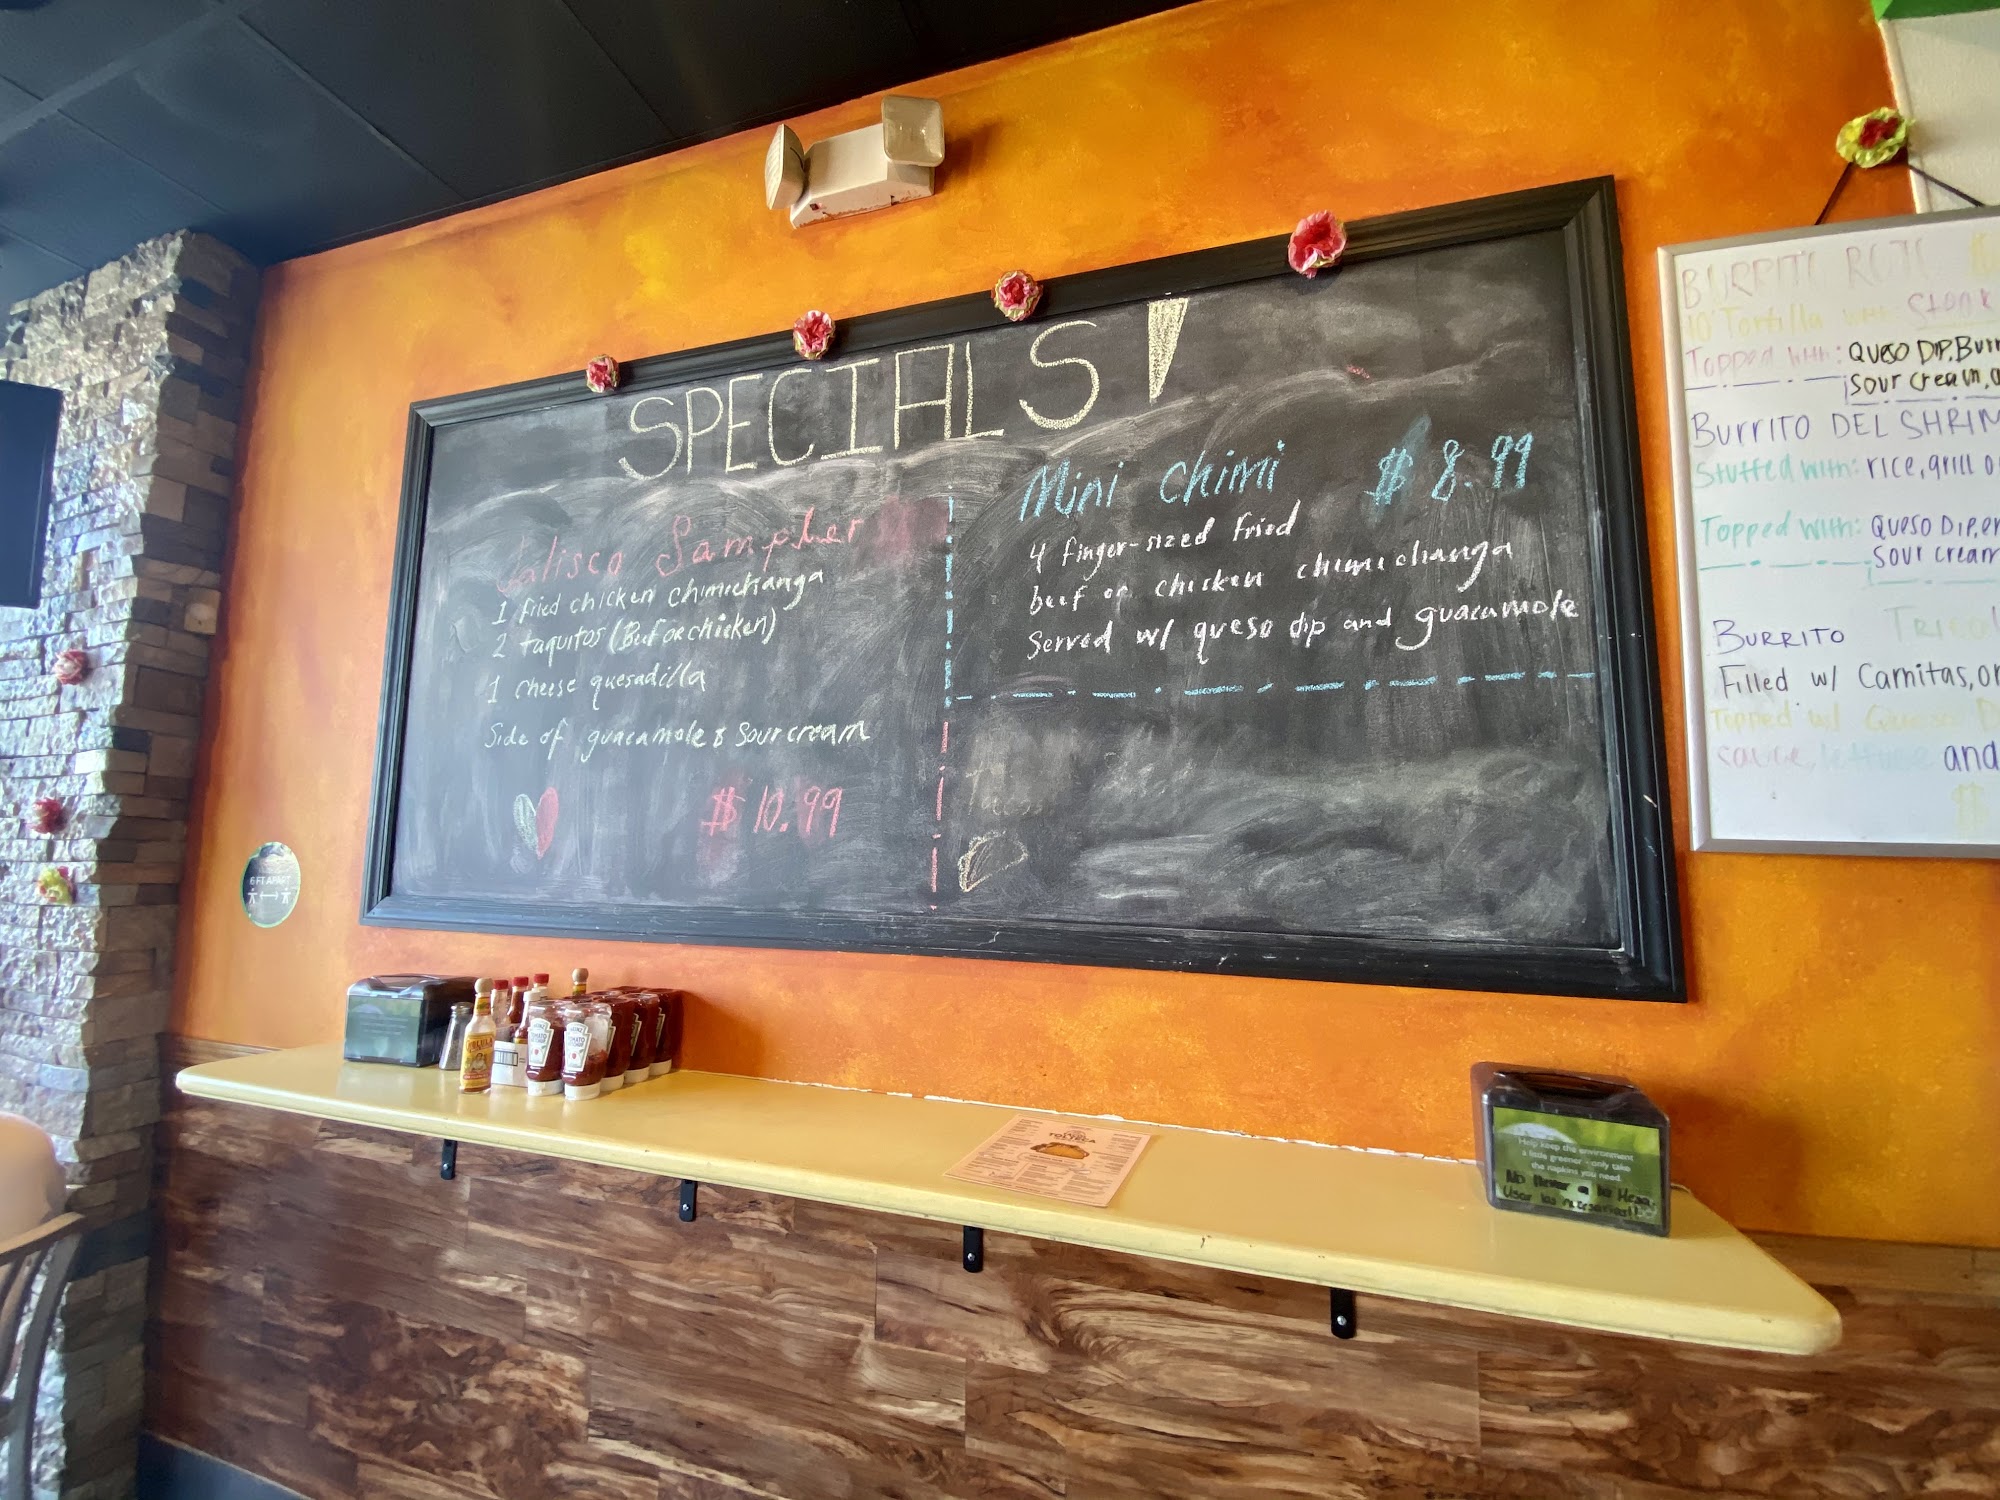 SPECIALS!
Jalisco Sampler
1 fried chicken chimichanga
2 taquitos (Beef or chicken)
1 cheese quesadilla
Side of guacamole & Sour cream
$10.99
Mini Chimi $8.99
4 finger-sized fried
beef or chicken chimichanga
Served w/ queso dip and guacamole
Tacos
BURRITO ROJO
10" Tortilla with: Steak
Topped with: QUESO DIP, Burr
Sour cream,
BURRITO DEL SHRIM
Stuffed with: rice, grill
Topped with: QUESO DIP,
Sour cream
BURRITO
Filled w/ Carnitas, or
Topped w/ Queso D
sauce, lettuce and
$
6 FT APART
HEINZ
TOMATO
KETCHUP
HEINZ
TOMATO
KETCHUP
CHOLULA
TOLTECA
Help keep the environment
a little greener - only take
the napkins you need.
No llevar a la Mesa
Usar las necesarias!!